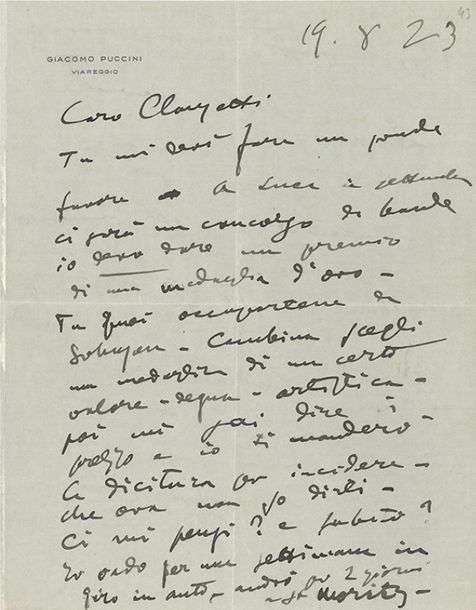 43
19. 8 23
GIACOMO PUCCINI
VIAREGGIO
Caro Clausetti
Tu mi devi fare un grande
favore A Lucca in settembre
ci sarà un concorso di bande
io devo dare un premio
di una medaglia d'oro -
Tu puoi occupartene da
- Cambina scegli
una medaglia di un certo
valore - degna - artistica -
poi mi fai dire i
prezzo e io ti manderò -
la dicitura per incidere -
che ora non so dirti -
Ci mi pensi? e subito?
Io vado per una settimana in
giro in auto - andrò per 2 giorni
a St Moritz -